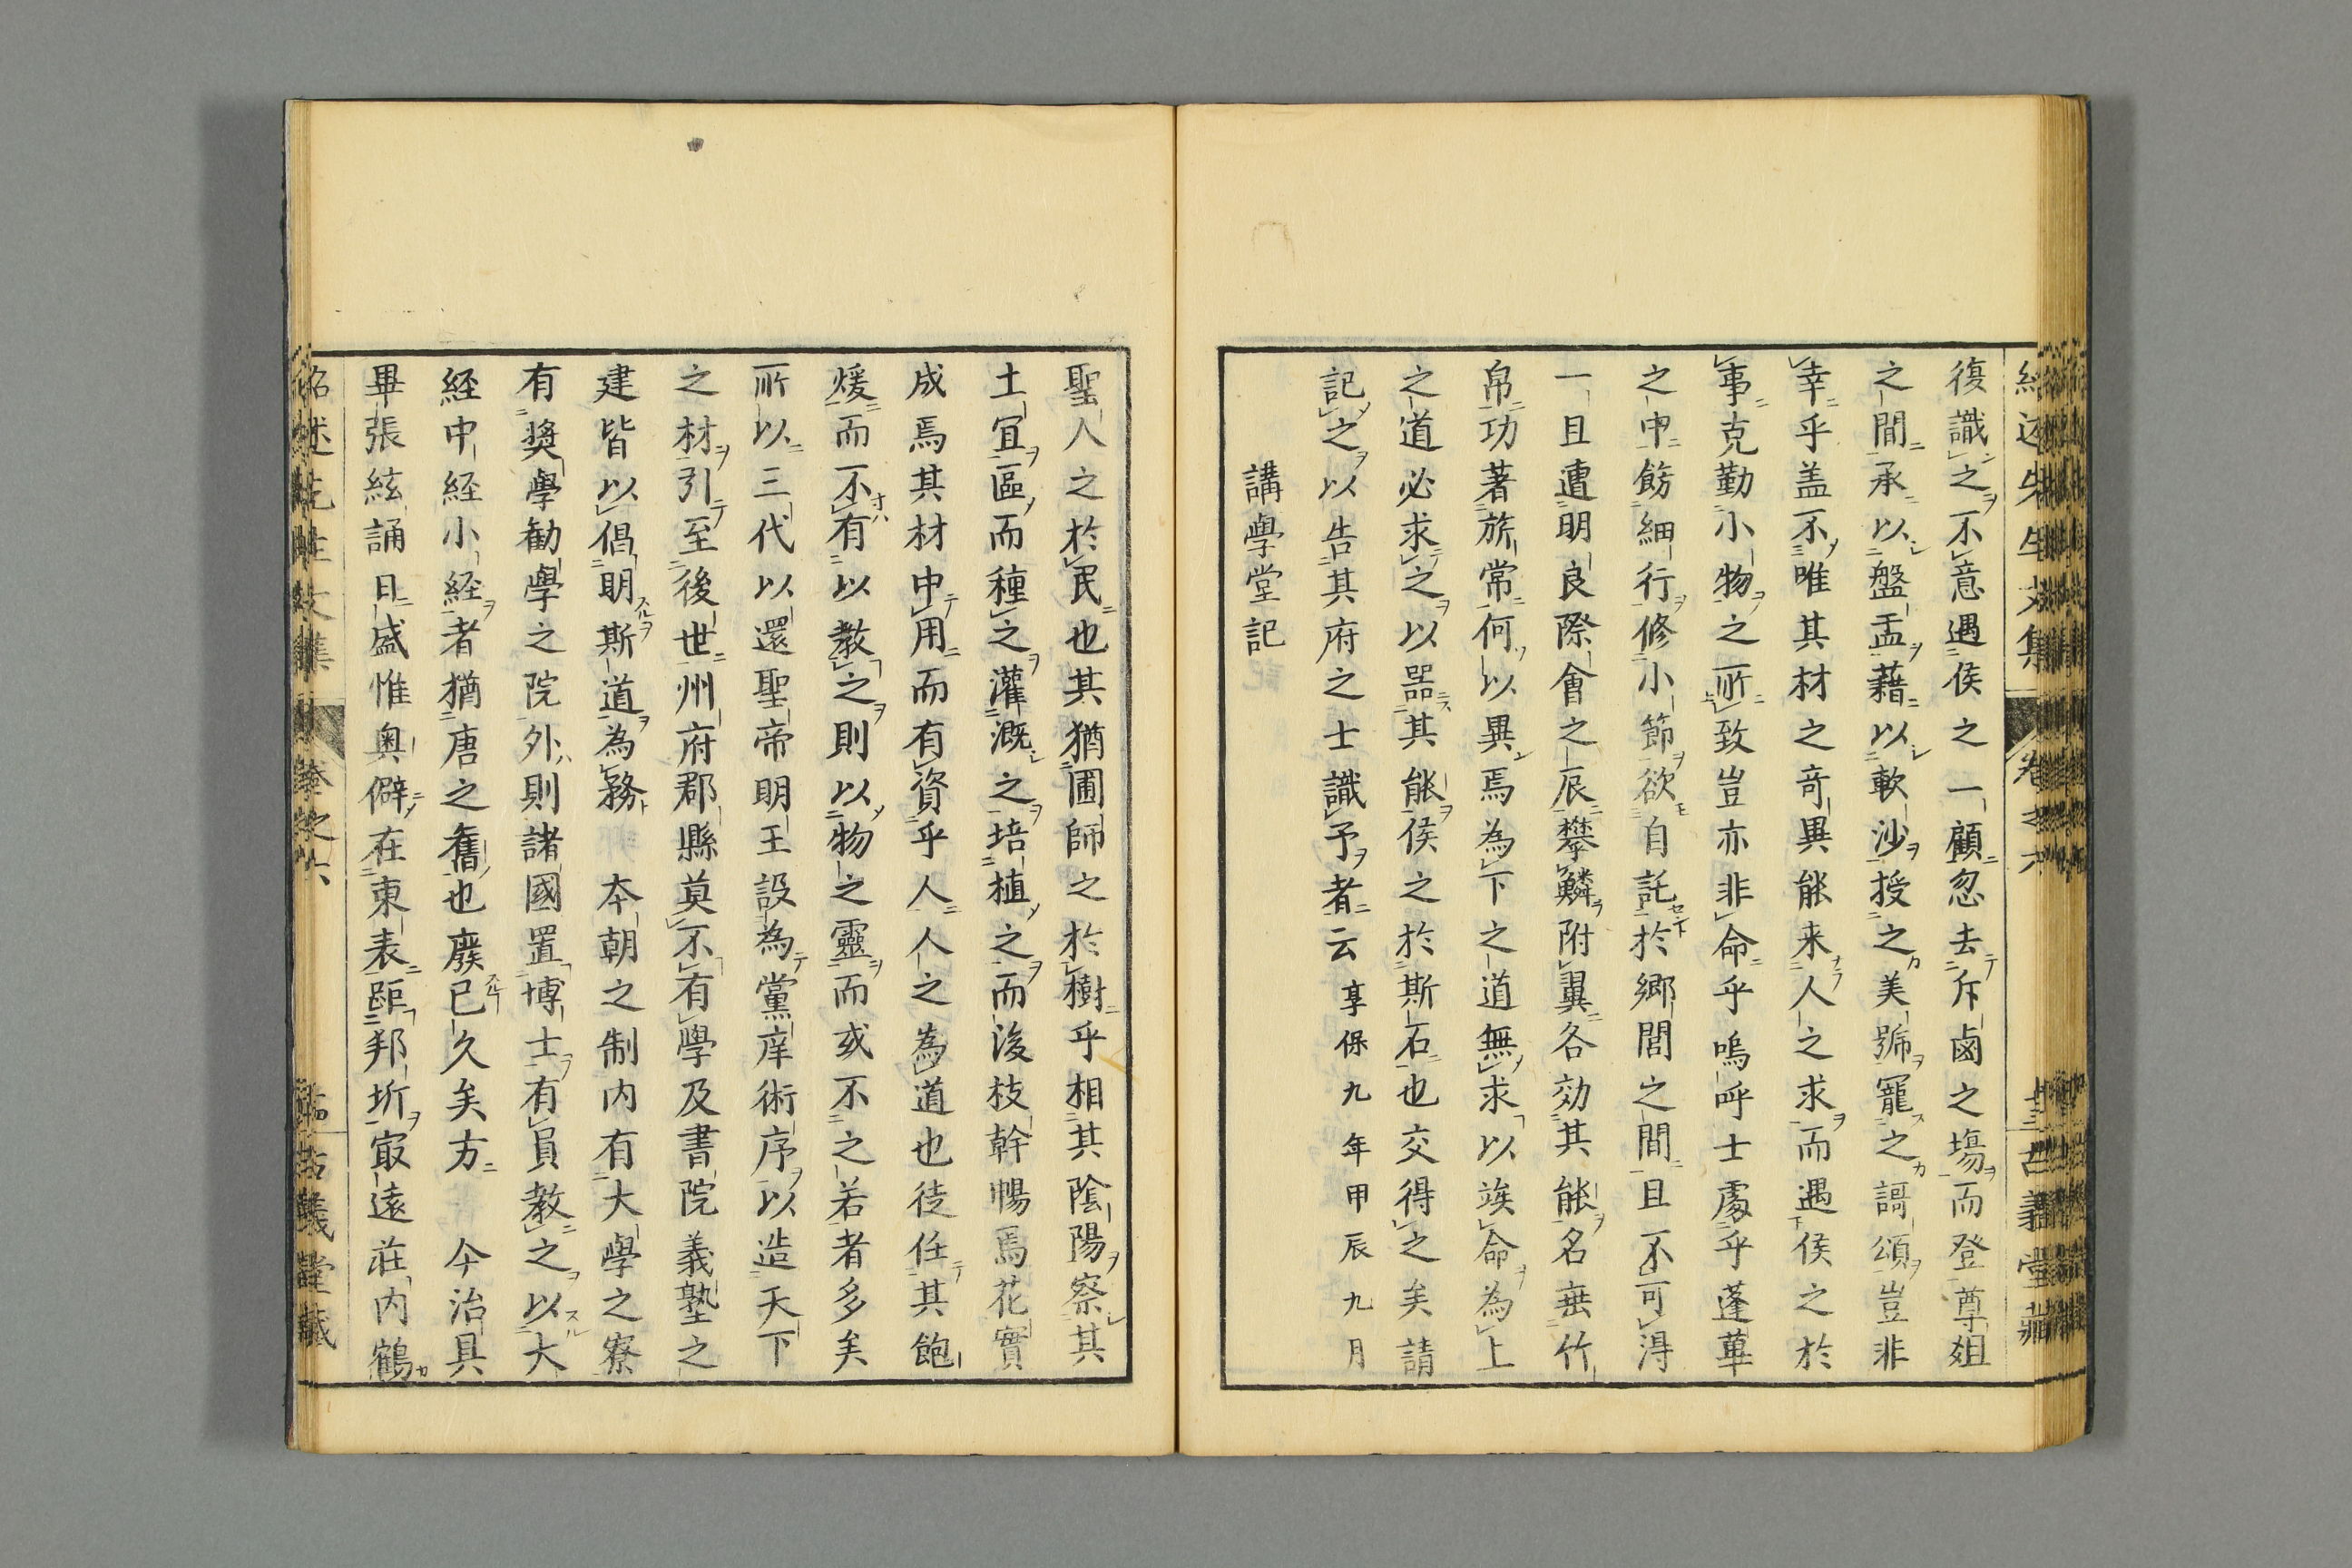 復識之不意遇侯之一顧忽去斥鹵之塲而登尊俎
之間承以盤盂藉以軟沙授之美號寵之謌頌豈非
幸乎盖不唯其材之竒異能来人之求而遇侯之於
事克勤小物之所致豈亦非命乎嗚呼士處乎蓬蓽
之中飭細行修小節欲自託於郷閭之間且不可得
一旦遭明良際會之辰攀鱗附翼各効其能名垂竹
帛功著旂常何以異焉為下之道無求以竢命為上
之道必求之以器其能侯之於斯石也交得之矣請
記之以告其府之士識予者云享保九年甲辰九月
講學堂記
聖人之於民也其猶圃師之於樹乎相其陰陽察其
土宜區而種之灌溉之培植之而後枝幹暢焉花實
成焉其材中用而有資乎人人之為道也徒任其飽
煖而不有以教之則以物之靈而或不之若者多矣
所以三代以還聖帝明王設為黨庠術序以造天下
之材引至後世州府郡縣莫不有學及書院義塾之
建皆以倡明斯道為務本朝之制内有大學之寮
有奬學勸學之院外則諸國置博士有員教之以大
経中経小経者猶唐之舊也廢已久矣方今治具
畢張絃誦日盛惟奥僻在東表距邦圻寂遠莊内鶴
紹述先生文集 卷之六 十三 古義堂藏
紹述先生文集 卷之六 古義堂藏